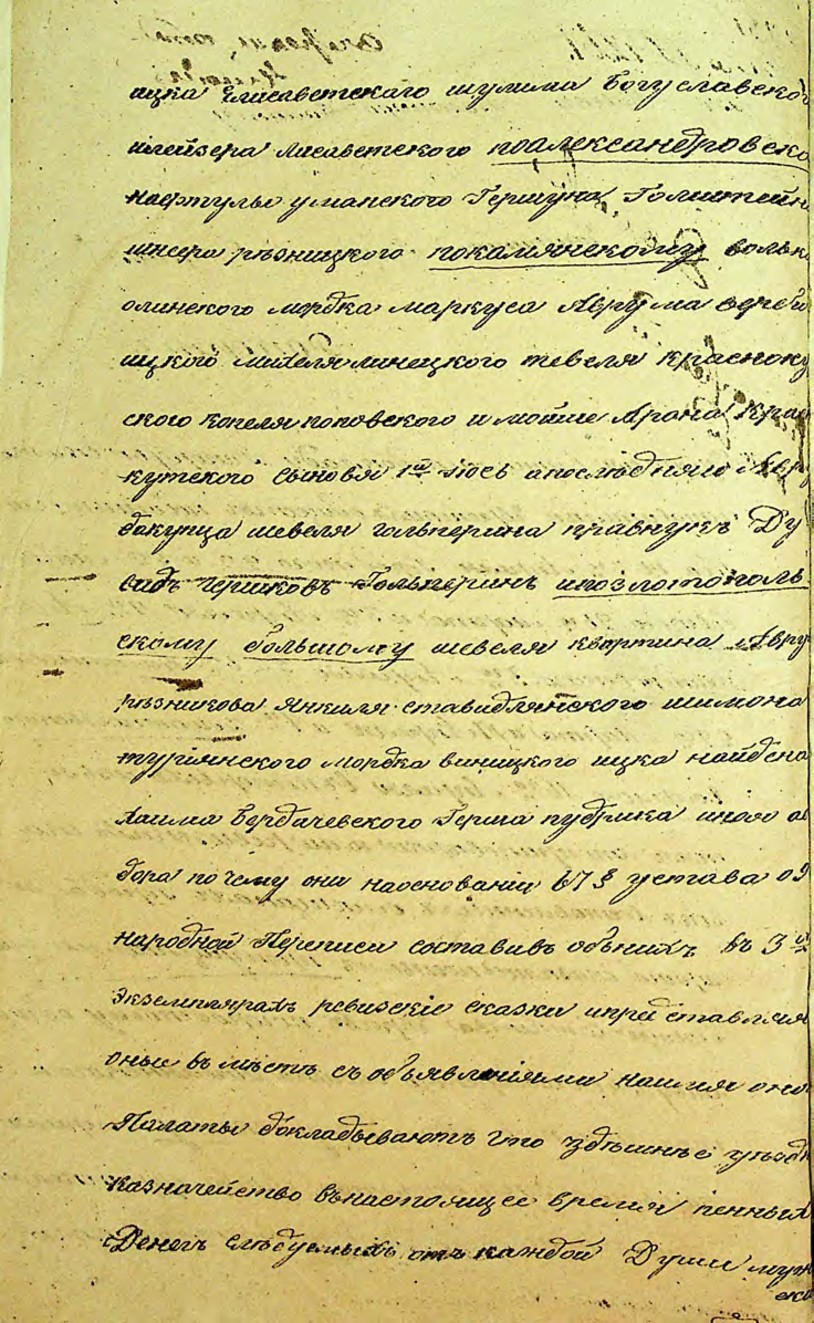 ицка Елисаветскаго шулима Богуславског
илейзера лисаветского поалександровско
нафтулы уманского Гершуна Голштейн
шнеера резницкого покамянскому вольк
олинского мордка маркуса Аврума верби
ицкого михеля линецкого тевеля краснокут
ского копеля поповского и мойше Арона Крас
кутского сыновя 1й Зюсь апоследняго Авр
бокунца шевеля гольперина правнукъ Ду
видъ Гершковъ Гольперинъ ипозлотополь
скому большому шевеля квартина Авру
резникова Янкиля ставидлянского шимона
туріянского мордка виницкого ицка найдена
Хаима Бердачевского Герша пудрика иного
бора почему они наоснованіи 67 § устава о 9
народной Переписи составивъ объ нихъ въ 3хъ
экземплярахъ ревизскіе сказки ипредставляя
оные въ местъ съ объявленіями на имя оной
Палаты докладываютъ что здешнее уездн
казначейство внастоящее время пенныхъ
Денегъ следуемыхъ отъ каждой Души муж
ско